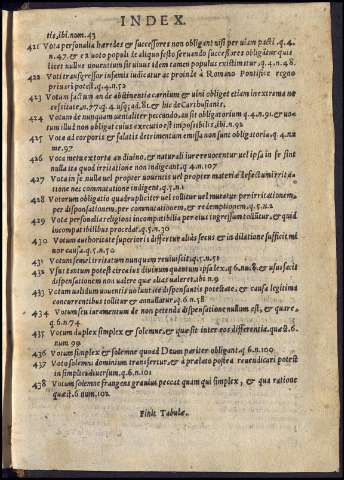 INDEX.
tis, ibi. nom. 43
421 Vota personalia haeredes & successores non obligant nisi per viam pacti. q. 4.
n. 47. & ex voto populi de aliquo festo servando successores obligatur qui-
licet nullus vouentium sit unius idem tamen populus existimatur. q. 4. n. 48.
422 Voti transgressor infamis iudicatur ac proinde à Romano Pontifice regno
priuari potest. q. 4. n. 52
423 Votum factum an de abstinentia carnium & uini obliget etiam in extrema ne
cessitate. n. 77. q. 4. usq; ad. 81. & hic de Carthusianis.
424 Votum de nunquam uenialiter peccando, an sit obligatorium q. 4. n. 91. & uo-
tum illud non obligat cuius executio est impossibilis, ibi. n. 92
425 Vota ad corporis & salutis detrimentum emissa non sunt obligatoria. q. 4. nu
me. 97
426 Vota metu extorta an diuino, & naturali iure reuocentur uel ipsa in se sint
nulla ita quod irritatione non indigeant. q. 4. n. 107
427 Vota in se nulla uel propter uouentis uel propter materiae defectum irrita-
tione nec commutatione indigent. q. 5. n. 1
428 Votorum obligatio quadrupliciter uel tollitur uel mutatur per irritationem,
per dispensationem, per commutationem, & redemptionem q. 5. n. 2
429 Vota personalia religioni incompatibilia per eius ingressum tolluntur, & quid
incompatibilibus procedat. q. 5. n. 30
430 Votum authoritate superioris differtur aliàs secus & in dilatione sufficit. mi
nor causa. q. 5. n. 50
431 Votum semel irritatum nunquam reuiuiscit. q. 5. n. 51
432
dispensationem non ualere que aliàs ualeret. ibi. n. 9
433 Votum ualidum uouentis uoluntate dispensantis potestate, & causa legitima
concurrentibus tollitur & annullatur. q. 6 n. 58
434 Votum seu iuramentum de non petenda dispensatione nullum est, & quare.
q. 6 n. 74
435 Votum duplex simplex & solemne, & quae sit inter eos differentia. quaest. 6.
num 99
436 Votum simplex & solemne quoad Deum pariter obligant. q. 6 n. 100
437 Voto solemni dominium transfertur, & à praelato postea reuendicari potest
in simplici diuersum. q. 6 n. 101
438 Votum solemne frangens grauius peccat quam qui simplex, & qua ratione
quaest. 6 num. 102.
Finis Tabulae.